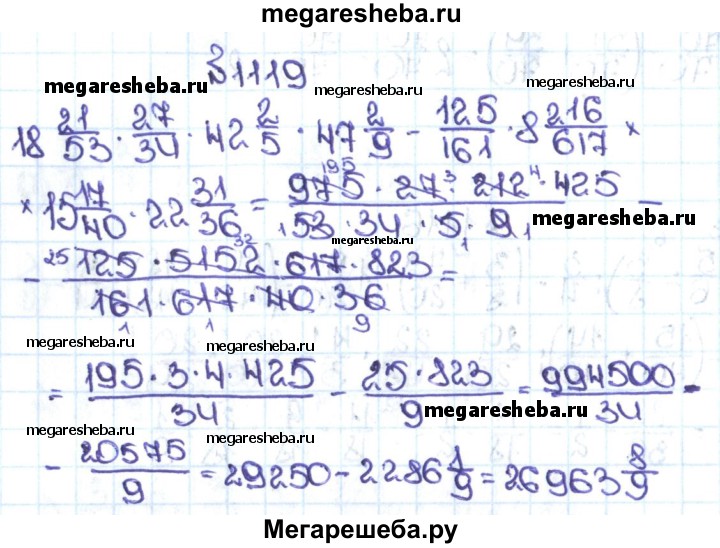 megaresheba.ru
№1119
megaresheba.ru megaresheba.ru
18 21/53 · 27/34 · 42 2/5 · 47 2/9 - 125/161 · 8 216/617 ×
× 15 17/40 · 22 31/36 = 975 · 27 · 212 · 425 / 53 · 34 · 5 · 9 -
195 3 4
1 1 1
megaresheba.ru
megaresheba.ru
- 125 · 5152 · 617 · 823 / 161 · 617 · 40 · 36 =
25 32
1 1 9
megaresheba.ru megaresheba.ru
megaresheba.ru megaresheba.ru
= 195 · 3 · 4 · 425 / 34 - 25 · 823 / 9 = 994500 / 34 -
megaresheba.ru
megaresheba.ru megaresheba.ru
- 20575 / 9 = 29250 - 2286 1/9 = 26963 8/9
Мегарешеба.ру